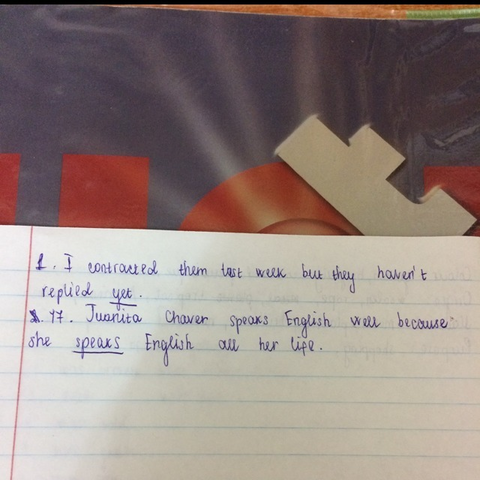 1. I contracted them last week but they haven't
replied yet.
17. Juanita Chaver speaks English well because
she speaks English all her life.